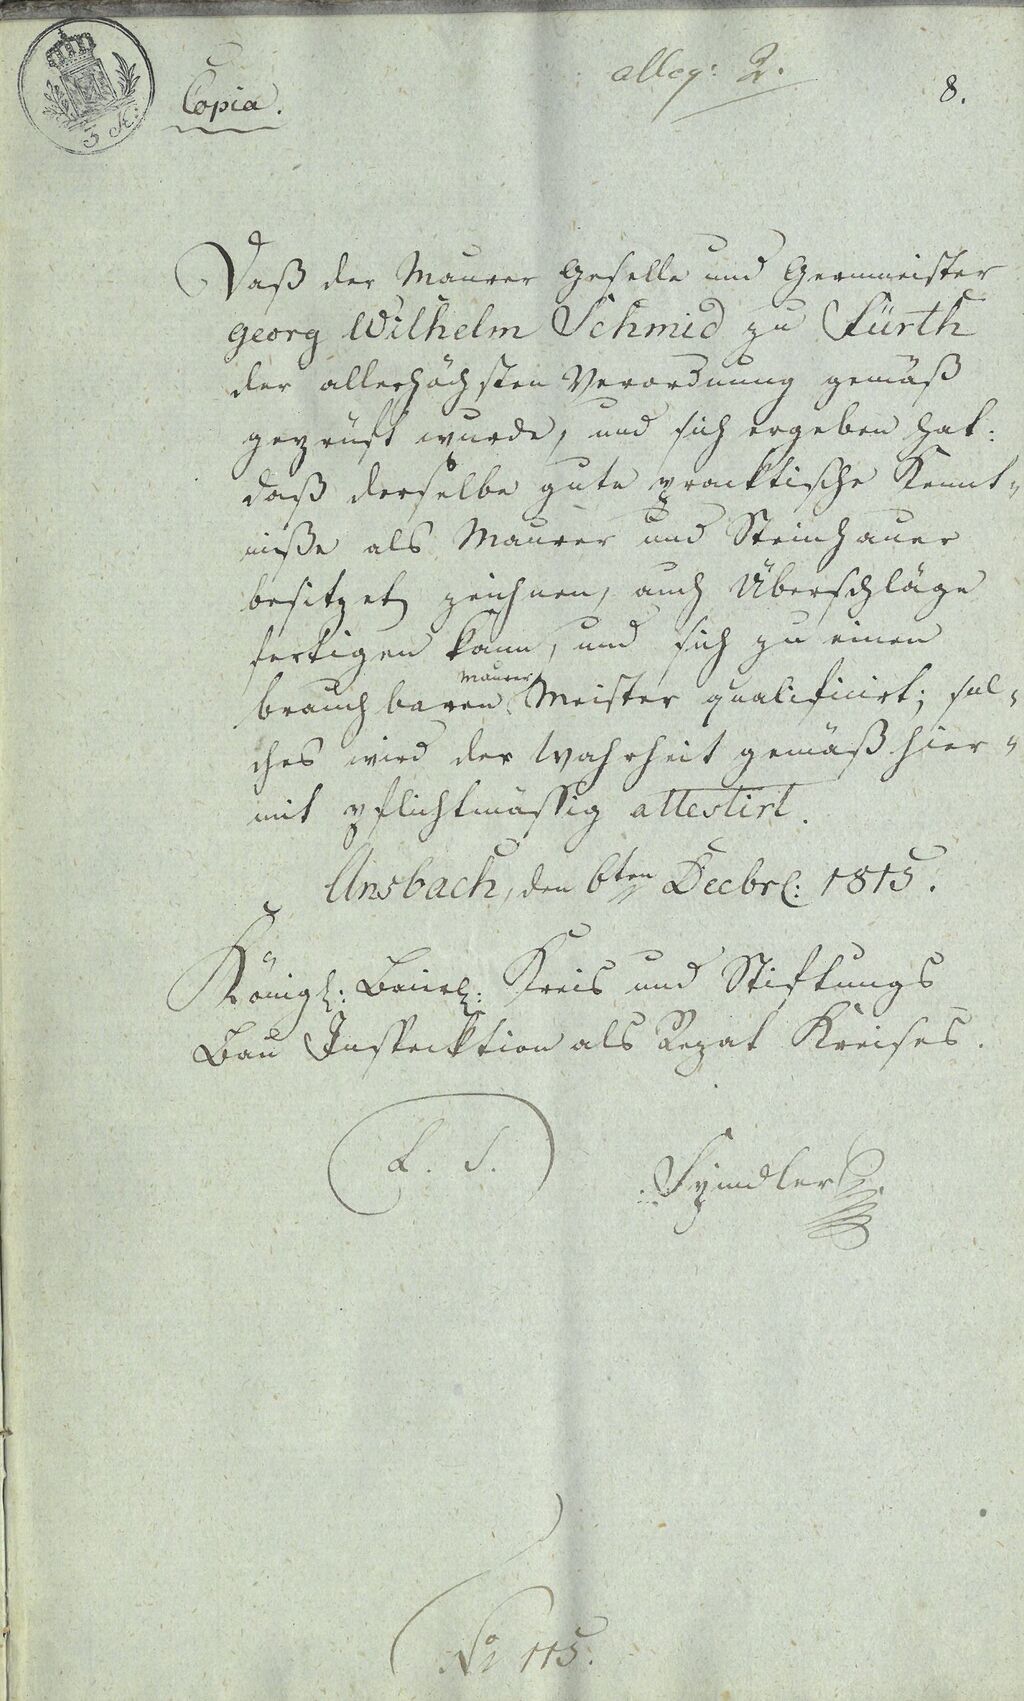 alleg: 2.
8.
Copia.
3 K:
Daß der Maurer Geselle und Germeister
Georg Wilhelm Schmid zu Fürth
der allerhöchsten Verordnung gemäß
geprüft wurde, und sich ergeben hat:
daß derselbe gute pracktische Kennt-
niße als Maurer und Steinhauer
besitzet, zeichnen, auch Überschläge
fertigen kann, und sich zu einen
brauchbaren Maurer Meister qualificirt; sol-
ches wird der Wahrheit gemäß hier-
mit pflichtmässig attestirt.
Ansbach, den 6ten Decbr: 1815.
Königl: Baierl: Kreis und Stiftungs
Bau Inspecktion als Rezat Kreises.
L. S.
Spindler
No 115.